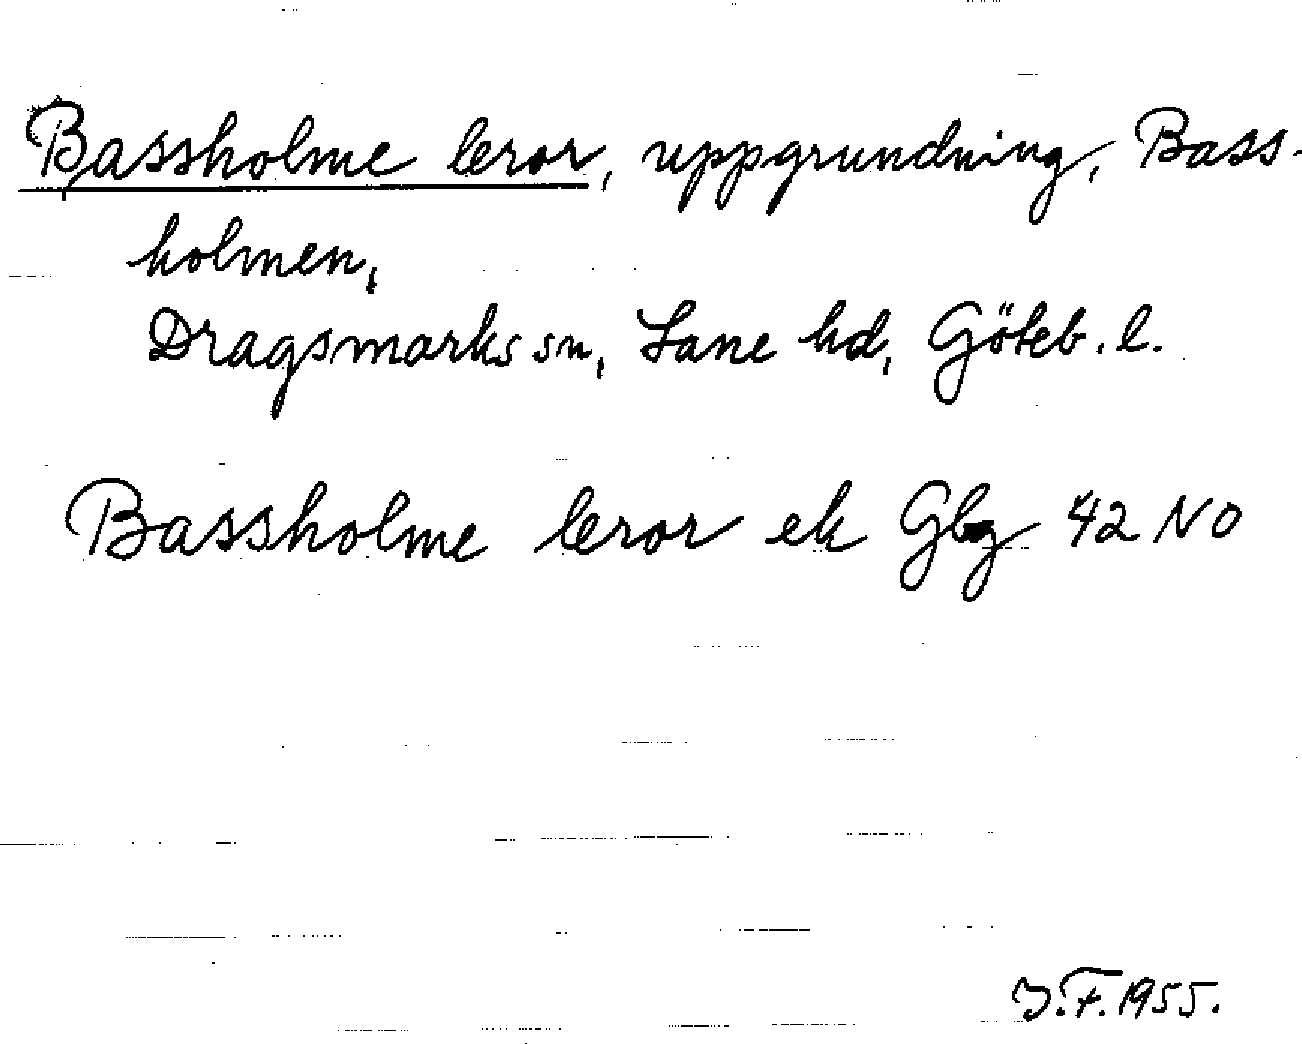 Bassholme leror, uppgrundning, Bass-
holmen,
Dragsmarks sn, Lane hd, Göteb. l.
Bassholme leror ek Gbg 42 NO
J.F. 1955.